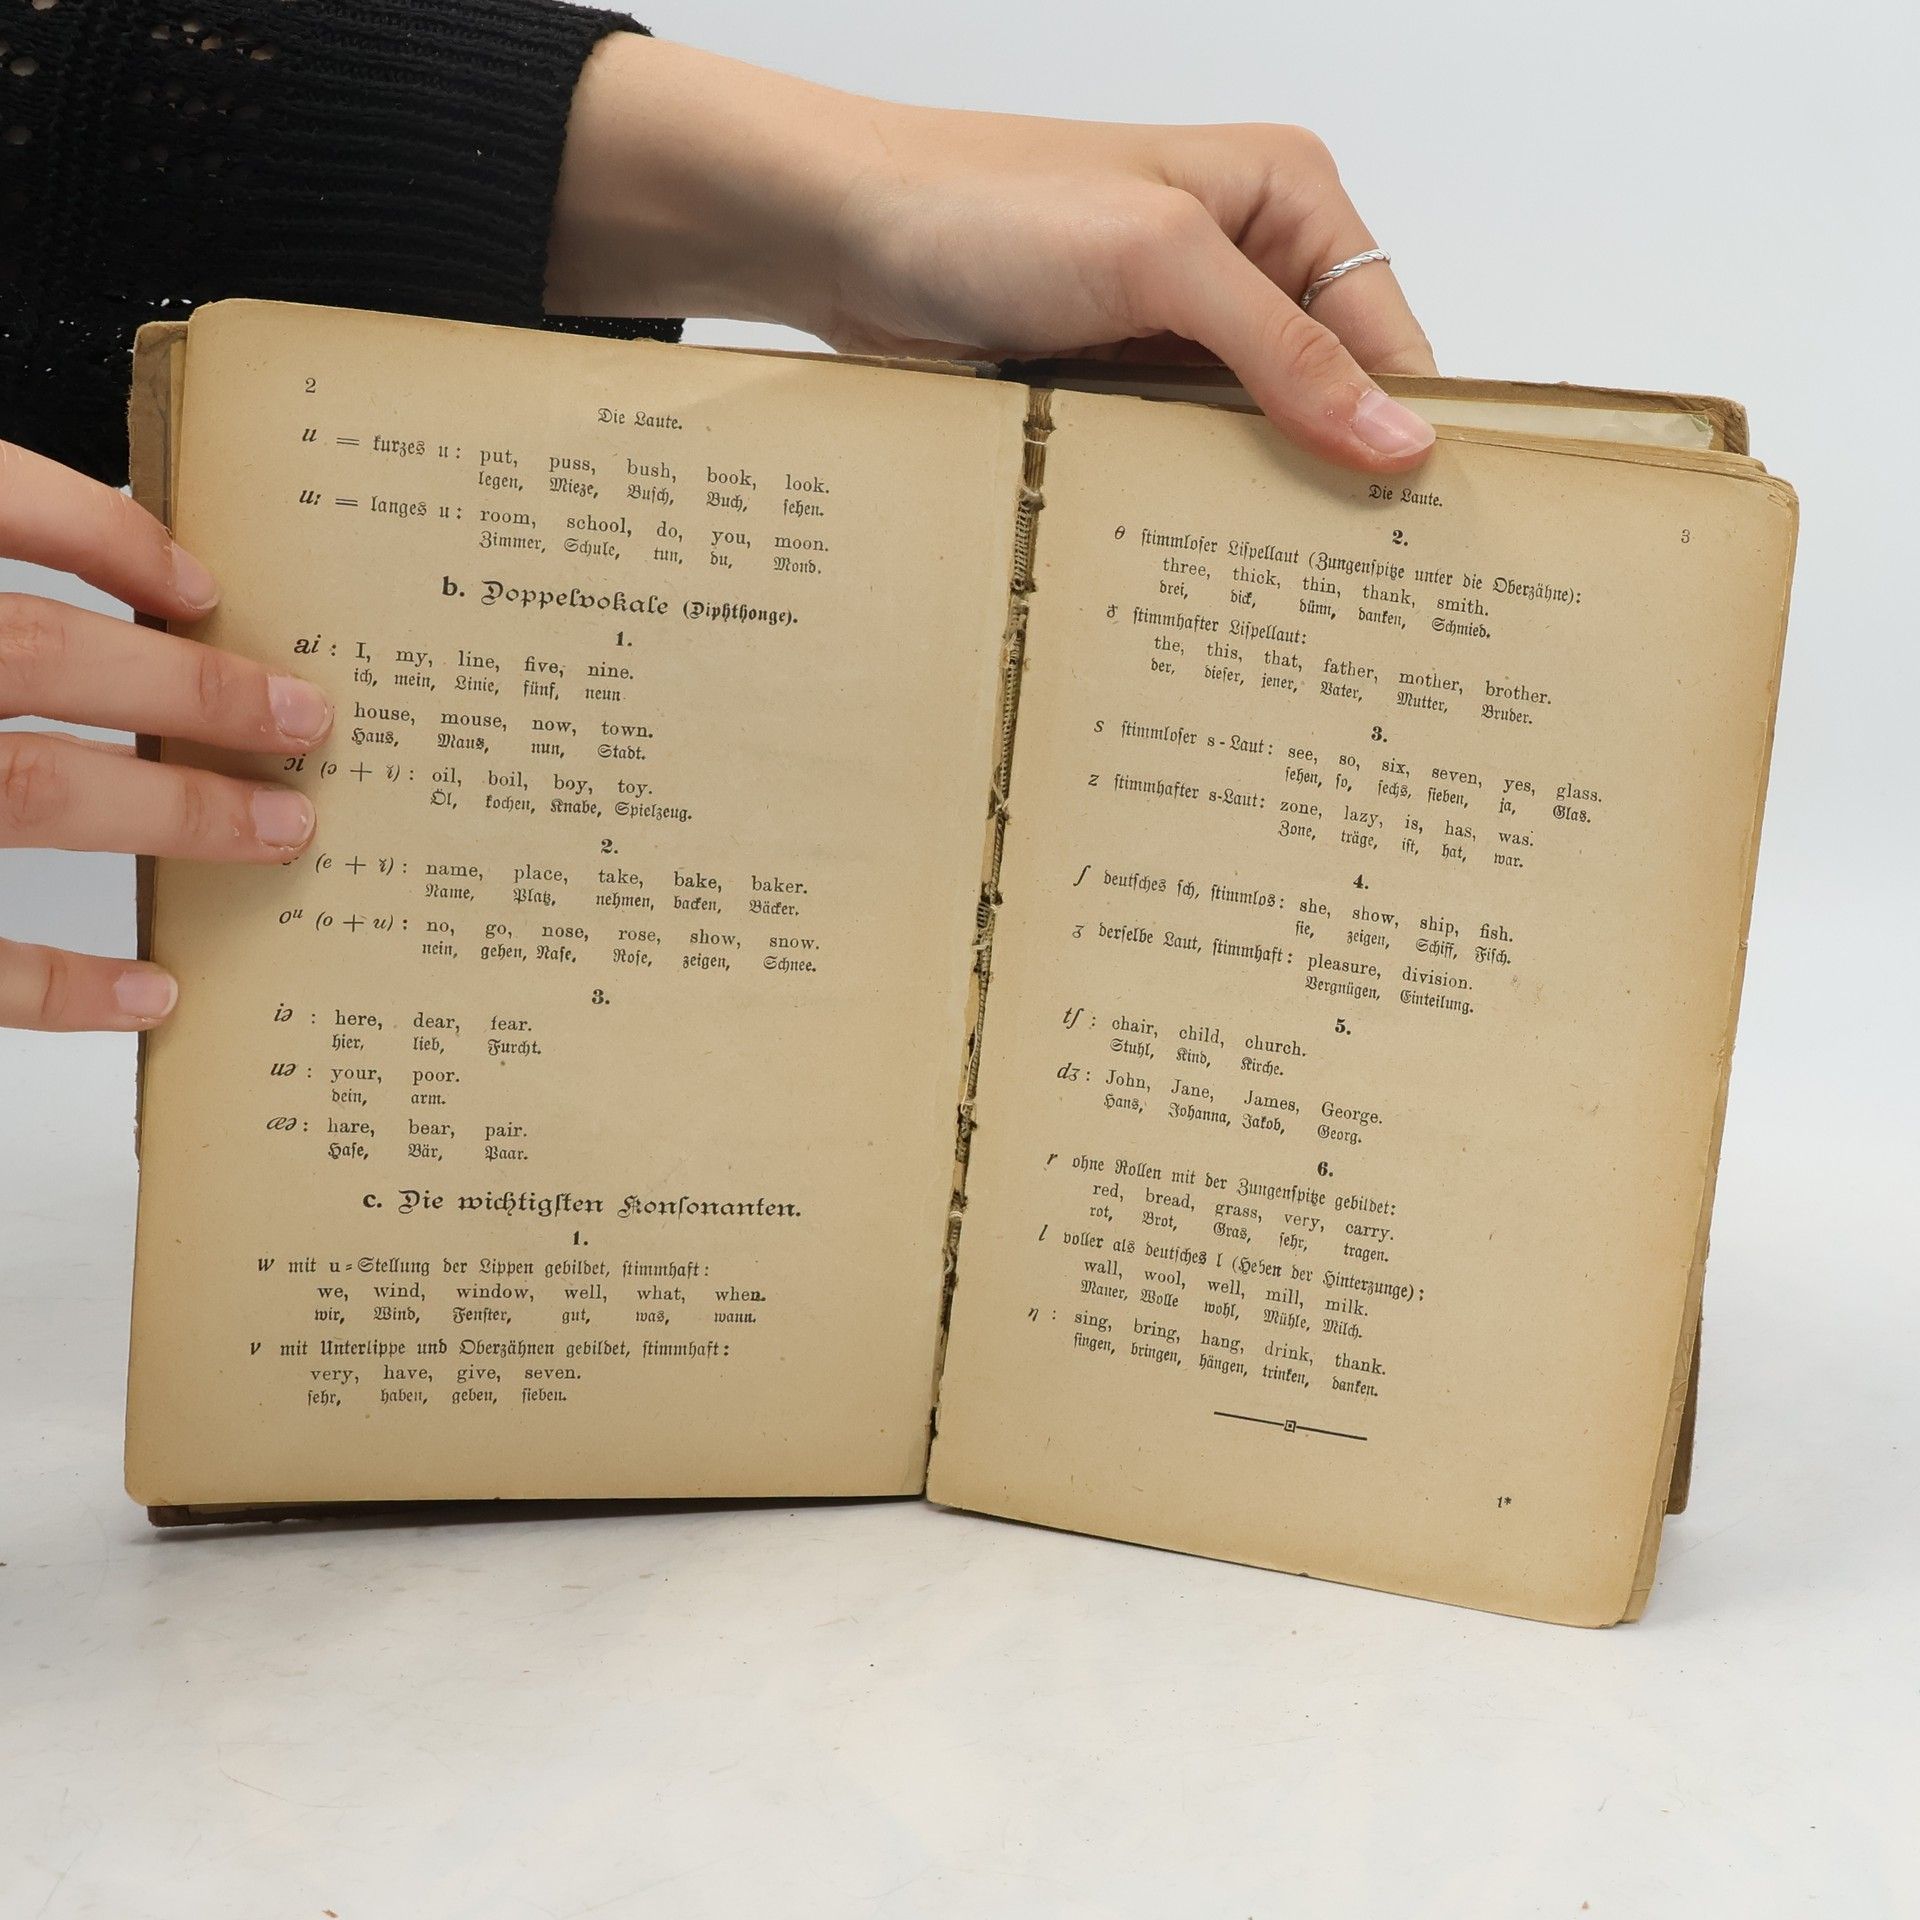 2
Die Laute.
u = kurzes u: put, puss, bush, book, look.
legen, Mieze, Buſch, Buch, ſehen.
u: = langes u: room, school, do, you, moon.
Zimmer, Schule, tun, du, Mond.
b. Doppelvokale (Diphthonge).
1.
ai: I, my, line, five, nine.
ich, mein, Linie, fünf, neun
house, mouse, now, town.
Haus, Maus, nun, Stadt.
ɔi (ɔ + i): oil, boil, boy, toy.
Öl, kochen, Knabe, Spielzeug.
2.
(e + i): name, place, take, bake, baker.
Name, Platz, nehmen, backen, Bäcker.
oᵘ (o + u): no, go, nose, rose, show, snow.
nein, gehen, Naſe, Roſe, zeigen, Schnee.
3.
iə: here, dear, fear.
hier, lieb, Furcht.
uə: your, poor.
dein, arm.
æə: hare, bear, pair.
Haſe, Bär, Paar.
c. Die wichtigſten Konſonanten.
1.
w mit u=Stellung der Lippen gebildet, ſtimmhaft:
we, wind, window, well, what, when.
wir, Wind, Fenſter, gut, was, wann.
v mit Unterlippe und Oberzähnen gebildet, ſtimmhaft:
very, have, give, seven.
ſehr, haben, geben, ſieben.
Die Laute.
3
2.
θ ſtimmloſer Liſpellaut (Zungenſpitze unter die Oberzähne):
three, thick, thin, thank, smith.
drei, dick, dünn, danken, Schmied.
ð ſtimmhafter Liſpellaut:
the, this, that, father, mother, brother.
der, dieſer, jener, Vater, Mutter, Bruder.
3.
s ſtimmloſer s-Laut: see, so, six, seven, yes, glass.
ſehen, ſo, ſechs, ſieben, ja, Glas.
z ſtimmhafter s-Laut: zone, lazy, is, has, was.
Zone, träge, iſt, hat, war.
4.
ʃ deutſches ſch, ſtimmlos: she, show, ship, fish.
ſie, zeigen, Schiff, Fiſch.
ʒ derſelbe Laut, ſtimmhaft: pleasure, division.
Vergnügen, Einteilung.
5.
tʃ: chair, child, church.
Stuhl, Kind, Kirche.
dʒ: John, Jane, James, George.
Hans, Johanna, Jakob, Georg.
6.
r ohne Rollen mit der Zungenſpitze gebildet:
red, bread, grass, very, carry.
rot, Brot, Gras, ſehr, tragen.
l voller als deutſches l (Heben der Hinterzunge):
wall, wool, well, mill, milk.
Mauer, Wolle wohl, Mühle, Milch.
η: sing, bring, hang, drink, thank.
ſingen, bringen, hängen, trinken, danken.
1*